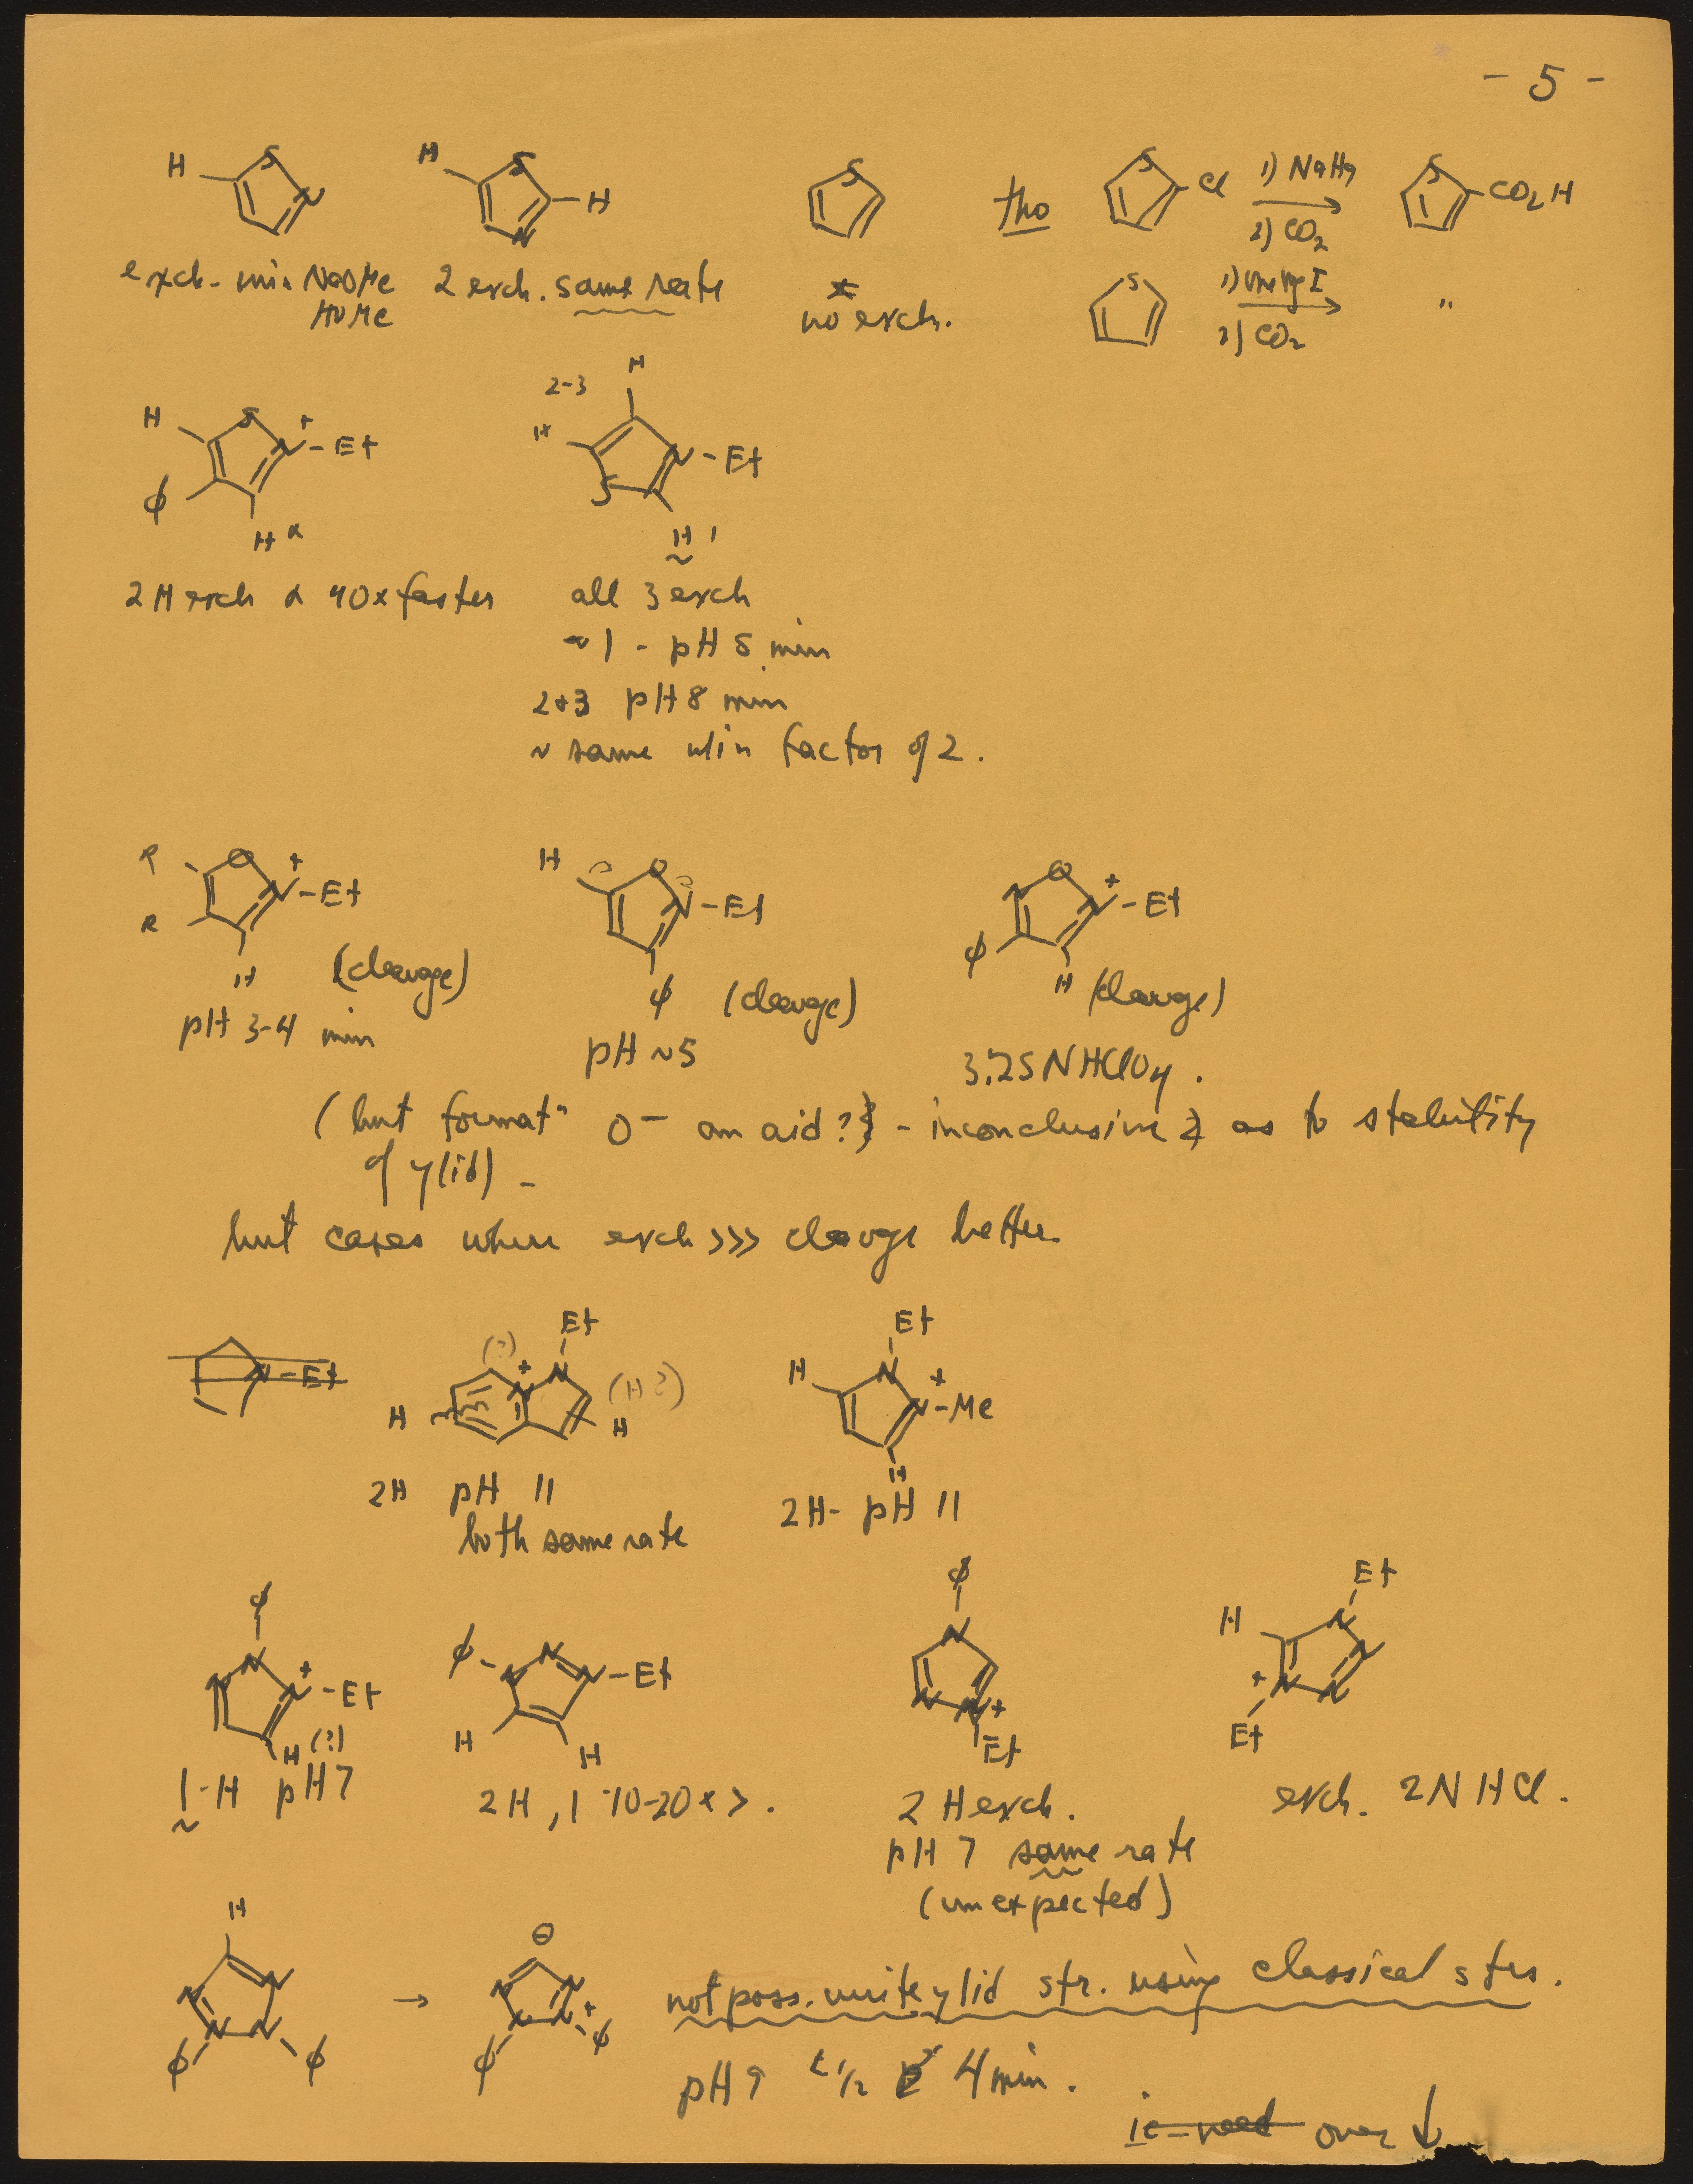 - 5 -
H S N
H S N H
S
tho
S Cl 1) NaHg 2) CO2 S CO2H
exch. min NaOMe
HOMe
2 exch. same rate
no exch.
S 1) 2) CO2 "
H S N + - Et φ H α
2-3 H H S N - Et H 1
2 H exch α 40x faster
all 3 exch
~ 1 - pH 5 min
2+3 pH 8 min
~ same w/in factor of 2.
R O N + - Et R H (cleavge)
H O N - Et φ (cleavge)
N O N + - Et φ H (cleavge)
pH 3-4 min
pH ~5
3.25 N HClO4.
(but format" O- an aid? - inconclusive as to stability
of ylid) -
but cases where exch >>> cleavge better
N - Et
(?) Et + N N H (H?) H
Et H N + N - Me H
2H pH 11
both same rate
2H - pH 11
φ N N N + - Et H (?)
φ - N N N - Et H H
φ N N N + Et
Et H N N N N + Et
1-H pH 7
2H, 1 10-20x >.
2 H exch.
pH 7 same rate
(unexpected)
exch. 2N HCl.
H N N N N φ φ
→
⊖ N N N N + φ φ
not poss. write ylid str. using classical strs.
pH 9 t 1/2 4 min.
over ↓